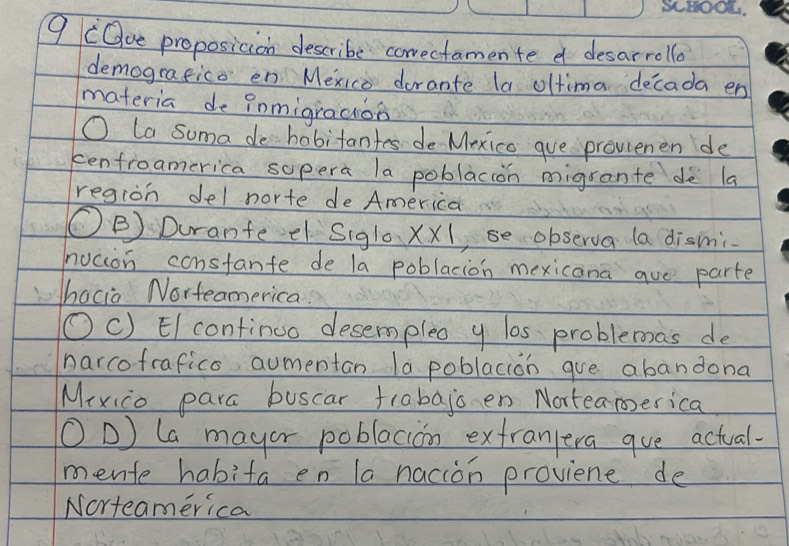 SCHOOL.
9 ¿Que proposición describe correctamente el desarrollo
demografico en México durante la ultima decada en
materia de inmigración
O la suma de habitantes de Mexico que provienen de
centroamerica supera la población migrante de la
región del norte de America
O B) Durante el Siglo XXI, se observa la dismi-
nución constante de la población mexicana que parte
hacia Norteamerica.
O C) El continuo desempleo y los problemas de
narcotrafico aumentan la población que abandona
México para buscar trabajo en Norteamerica
O D) la mayor población extranjera que actual-
mente habita en la nación proviene de
Norteamérica